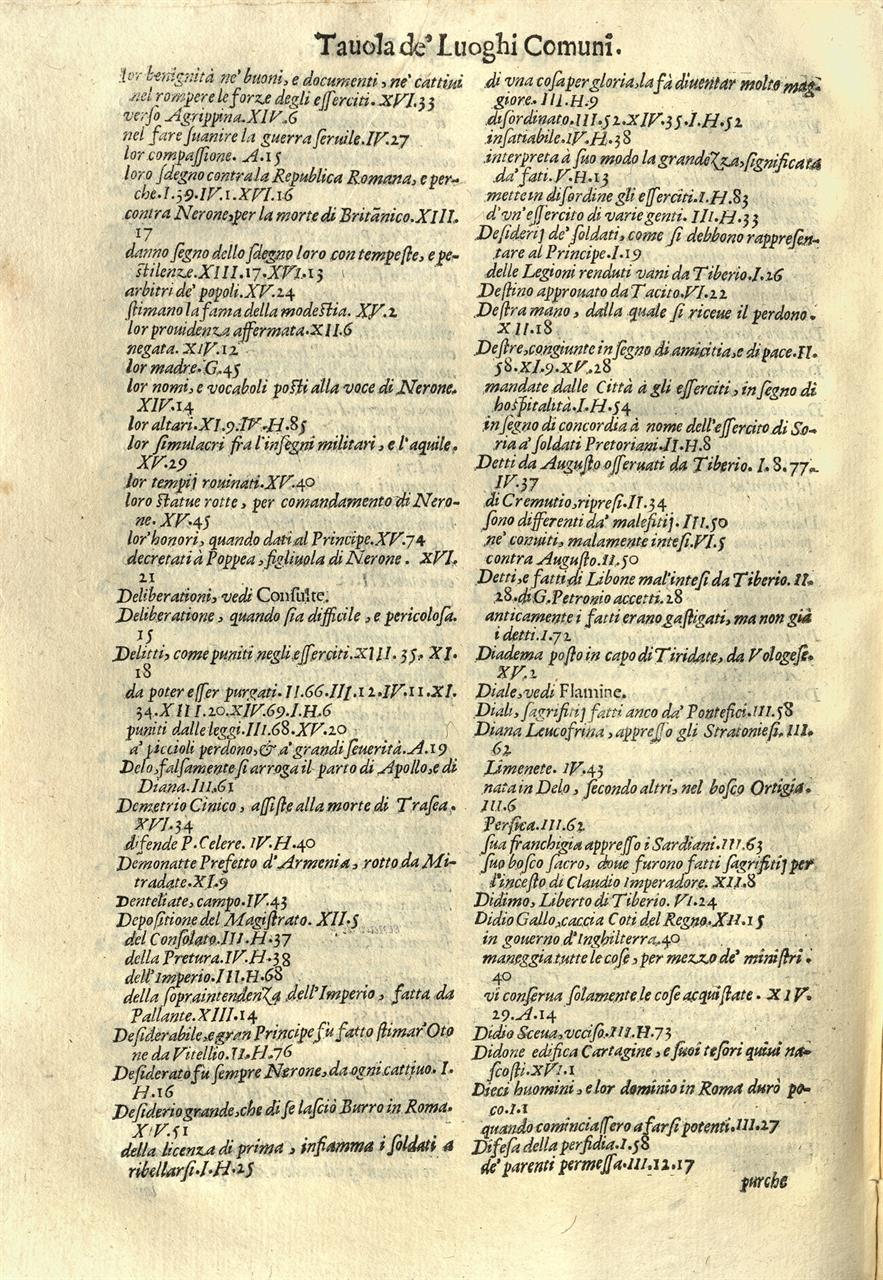 Tauola de' Luoghi Comuni.
lor benignità ne' buoni, e documenti, ne' cattiui
nel rompere le forze degli esserciti. XVI.33
verso Agrippina. XIV.6
nel fare suanire la guerra seruile. IV.27
lor compassione. A.15
loro sdegno contra la Republica Romana, e per-
che. I.39. IV.1. XVI.16
contra Nerone, per la morte di Britãnico. XIII.
17
danno segno dello sdegno loro con tempeste, e pe-
stilenze. XIII.17. XVI.13
arbitri de' popoli. XV.24
stimano la fama della modestia. XV.2
lor prouidenza affermata. XII.6
negata. XIV.12
lor madre. G.45
lor nomi, e vocaboli posti alla voce di Nerone.
XIV.14
lor altari. XI.9. IV.H.85
lor simulacri fra l'insegni militari, e l'aquile.
XV.29
lor tempij rouinati. XV.40
loro statue rotte, per comandamento di Nero-
ne. XV.45
lor' honori, quando dati al Principe. XV.74
decretati à Poppea, figliuola di Nerone. XVI.
21
Deliberationi, vedi Consulte.
Deliberatione, quando sia difficile, e pericolosa.
15
Delitti, come puniti negli esserciti. XIII.35. XI.
18
da poter esser purgati. II.66. III.12. IV.11. XI.
34. XIII.20. XIV.69. I.H.6
puniti dalle leggi. III.68. XV.20
a' piccioli perdono, & a' grandi seuerità. A.19
Delo, falsamente si arroga il parto di Apollo, e di
Diana. III.61
Demetrio Cinico, assiste alla morte di Trasea.
XVI.34
difende P. Celere. IV.H.40
Demonatte Prefetto d'Armenia, rotto da Mi-
tradate. XI.9
Denteliate, campo. IV.43
Depositione del Magistrato. XII.5
del Consolato. III.H.37
della Pretura. IV.H.38
dell'Imperio. III.H.68
della sopraintendenza dell'Imperio, fatta da
Pallante. XIII.14
Desiderabile, e gran Principe fu fatto stimar' Oto
ne da Vitellio. II.H.76
Desiderato fu sempre Nerone, da ogni cattiuo. I.
H.16
Desiderio grande, che di se lasciò Burro in Roma.
XIV.51
della licenza di prima, infiamma i soldati a
ribellarsi. I.H.25
di vna cosa per gloria, la fà diuentar molto mag-
giore. III.H.9
disordinato. III.52. XIV.35. I.H.52
insatiabile. IV.H.38
interpreta à suo modo la grandezza, significata
da' fati. V.H.13
mette in disordine gli esserciti. I.H.83
d'vn' essercito di varie genti. III.H.33
Desiderij de' soldati, come si debbono rappresen-
tare al Principe. I.19
delle Legioni renduti vani da Tiberio. I.26
Destino approuato da Tacito. VI.22
Destra mano, dalla quale si riceue il perdono.
XII.18
Destre, congiunte in segno di amicitia, e di pace. II.
58. XI.9. XV.28
mandate dalle Città à gli esserciti, in segno di
hospitalità. I.H.54
in segno di concordia à nome dell'essercito di So-
ria a' soldati Pretoriani. II.H.8
Detti da Augusto osseruati da Tiberio. I.8.77.
IV.37
di Cremutio, ripresi. II.34
sono differenti da' malefitij. III.50
ne' conuiti, malamente intesi. VI.5
contra Augusto. II.50
Detti, e fatti di Libone mal'intesi da Tiberio. II.
28. di G. Petronio accetti. 28
anticamente i fatti erano gastigati, ma non già
i detti. I.72
Diadema posto in capo di Tiridate, da Vologese.
XV.2
Diale, vedi Flamine.
Diali, sagrifitij fatti anco da' Pontefici. III.58
Diana Leucofrina, appresso gli Stratoniesi. III.
62
Limenete. IV.43
nata in Delo, secondo altri, nel bosco Ortigia.
III.6
Persica. III.62
sua franchigia appresso i Sardiani. III.63
suo bosco sacro, doue furono fatti sagrifitij per
l'incesto di Claudio Imperadore. XII.8
Didimo, Liberto di Tiberio. VI.24
Didio Gallo, caccia Coti del Regno. XII.15
in gouerno d'Inghilterra. 40
maneggia tutte le cose, per mezzo de' ministri.
40
vi conserua solamente le cose acquistate. XIV.
29. A.14
Didio Sceua, vcciso. III.H.73
Didone edifica Cartagine, e suoi tesori quiui na-
scosti. XVI.1
Dieci huomini, e lor dominio in Roma durò po-
co. I.1
quando cominciassero a farsi potenti. III.27
Difesa della perfidia. I.58
de' parenti permessa. III.12.17
purche